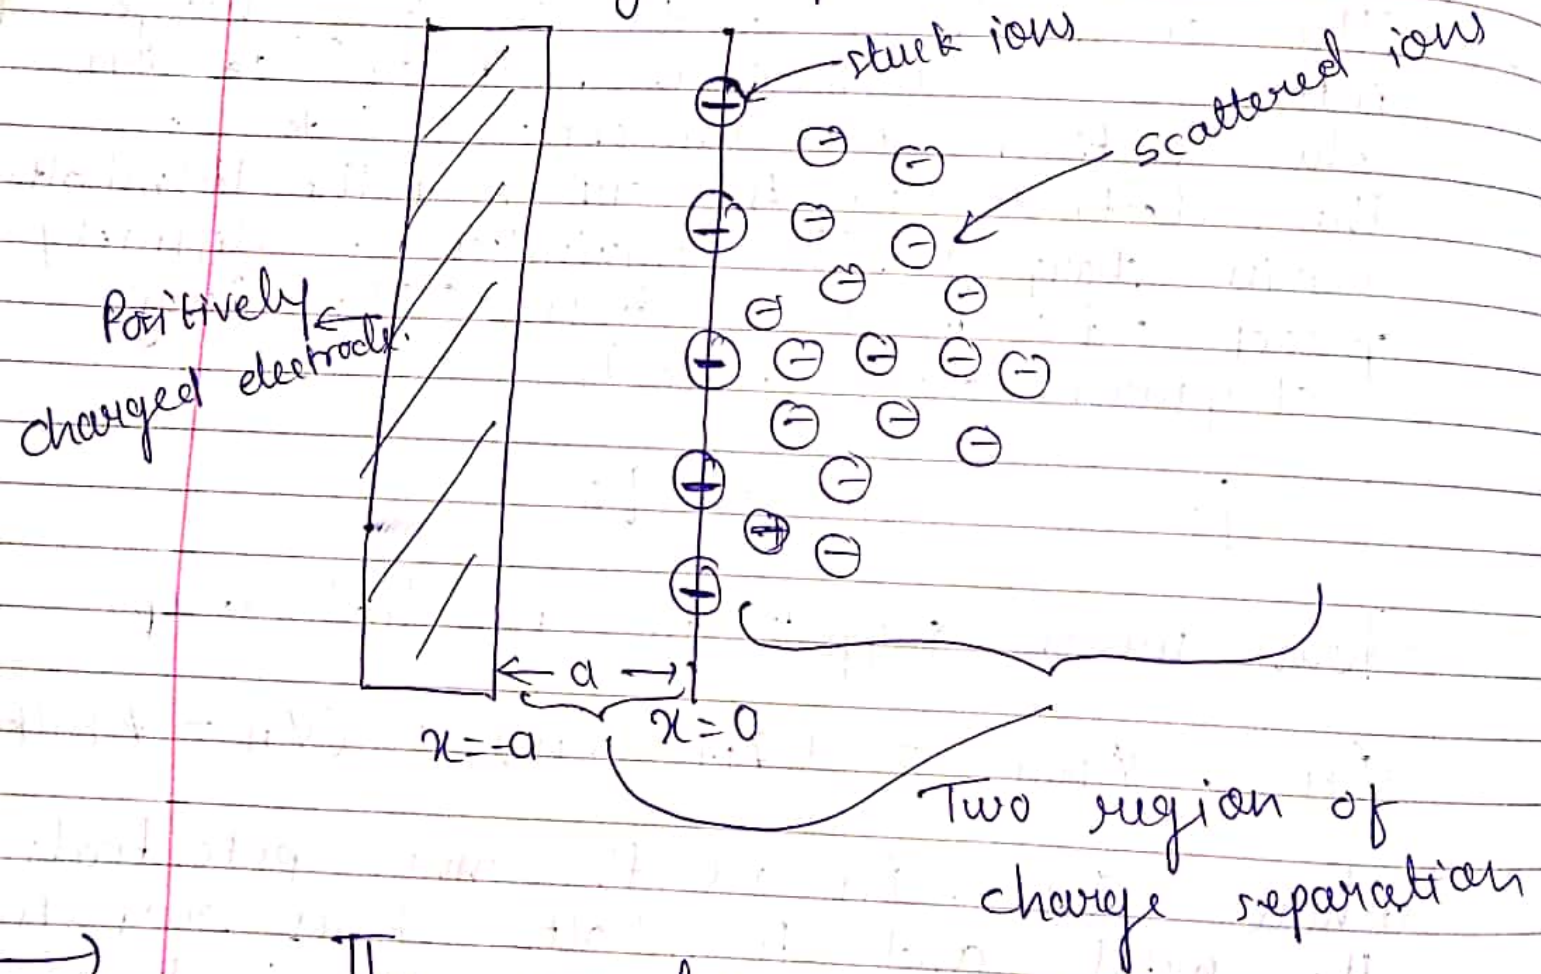 stuck ions
scattered ions
Positively
charged electrode.
← a →
x=-a
x=0
Two region of
charge separation
II